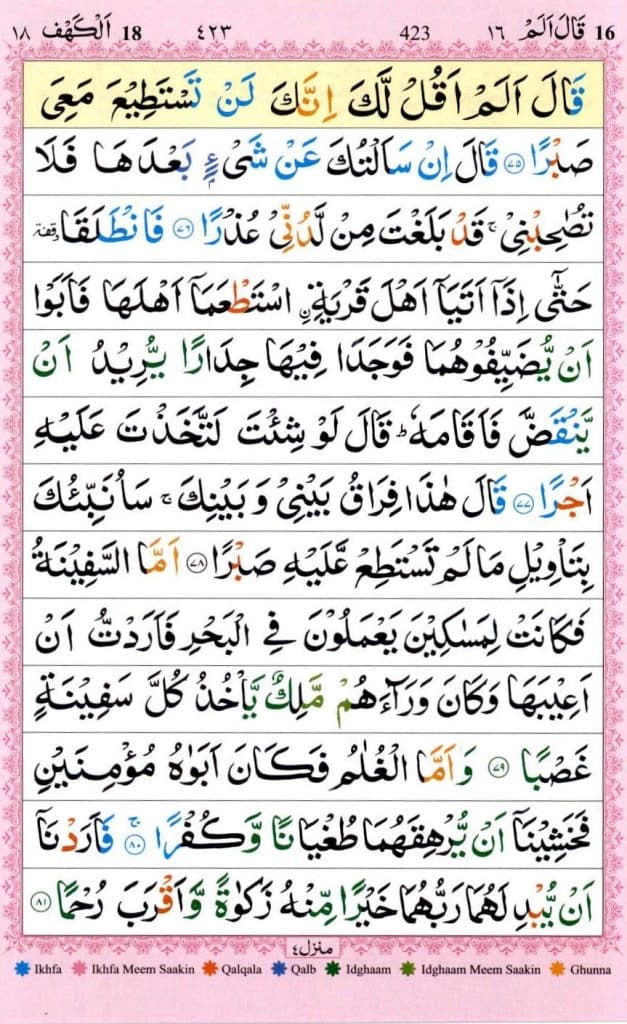 ١٨ اَلْكَهْف 18 ٤٢٣ 423 ١٦ قَالَ اَلَمْ 16
قَالَ اَلَمْ اَقُلْ لَّكَ اِنَّكَ لَنْ تَسْتَطِيْعَ مَعِىَ
صَبْرًا ۝٧٥ قَالَ اِنْ سَاَلْتُكَ عَنْ شَىْءٍۭ بَعْدَهَا فَلَا
تُصٰحِبْنِىْ ۚ قَدْ بَلَغْتَ مِنْ لَّدُنِّىْ عُذْرًا ۝٧٦ فَانْطَلَقَا وقفة
حَتّٰٓى اِذَاۤ اَتَيَاۤ اَهْلَ قَرْيَةِ ِۨ اسْتَطْعَمَاۤ اَهْلَهَا فَاَبَوْا
اَنْ يُّضَيِّفُوْهُمَا فَوَجَدَا فِيْهَا جِدَارًا يُّرِيْدُ اَنْ
يَّنْقَضَّ فَاَقَامَهٗ ؕ قَالَ لَوْ شِئْتَ لَتَّخَذْتَ عَلَيْهِ
اَجْرًا ۝٧٧ قَالَ هٰذَا فِرَاقُ بَيْنِىْ وَبَيْنِكَ ۚ سَاُنَبِّئُكَ
بِتَاْوِيْلِ مَا لَمْ تَسْتَطِعْ عَّلَيْهِ صَبْرًا ۝٧٨ اَمَّا السَّفِيْنَةُ
فَكَانَتْ لِمَسٰكِيْنَ يَعْمَلُوْنَ فِى الْبَحْرِ فَاَرَدْتُّ اَنْ
اَعِيْبَهَا وَكَانَ وَرَآءَهُمْ مَّلِكٌ يَّاْخُذُ كُلَّ سَفِيْنَةٍ
غَصْبًا ۝٧٩ وَاَمَّا الْغُلٰمُ فَكَانَ اَبَوٰهُ مُؤْمِنَيْنِ
فَخَشِيْنَاۤ اَنْ يُّرْهِقَهُمَا طُغْيَانًا وَّكُفْرًا ۚ ۝٨٠ فَاَرَدْنَاۤ
اَنْ يُّبْدِلَهُمَا رَبُّهُمَا خَيْرًا مِّنْهُ زَكٰوةً وَّاَقْرَبَ رُحْمًا ۝٨١
منزل٤
Ikhfa Ikhfa Meem Saakin Qalqala Qalb Idghaam Idghaam Meem Saakin Ghunna